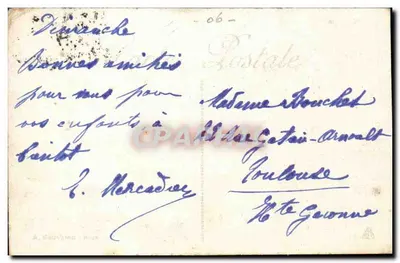 Dimanche
Bonnes amitiés
pour vous pour
vos enfants à
bientôt
E. Mercadier
06-
Postale
Madame Bouchet
22 Rue Gatien-Arnoult
Toulouse
Hte Garonne